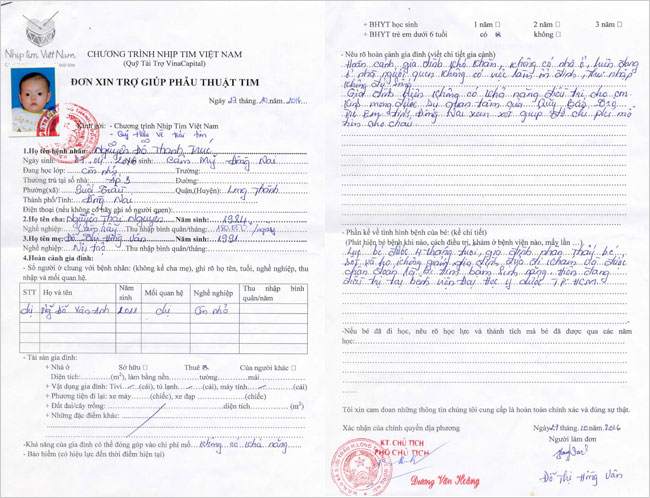 Nhịp tim Việt Nam
CHƯƠNG TRÌNH NHỊP TIM VIỆT NAM
(Quỹ Tài Trợ VinaCapital)
ĐƠN XIN TRỢ GIÚP PHẪU THUẬT TIM
Ngày 27 tháng 10 năm 2016
Kính gởi: - Chương trình Nhịp Tim Việt Nam
- Quỹ Hiểu Về Trái Tim
1.Họ tên bệnh nhân: Nguyễn Đỗ Thanh Trúc
Ngày sinh: 04 / 2016 Cẩm Mỹ Đồng Nai
Đang học lớp: còn nhỏ Trường:
Thường trú tại số nhà: Ấp 3 Đường:
Phường(xã): Suối Trầu Quận,(Huyện): Long Thành
Thành phố/Tỉnh: Đồng Nai
Điện thoại (nếu không có hãy ghi số người quen):
2.Họ tên cha: Nguyễn Thái Nguyên Năm sinh: 1984
Nghề nghiệp: Làm rẫy Thu nhập bình quân/tháng: /ngày
3.Họ tên mẹ: Đỗ Thị Hồng Vân Năm sinh: 1991
Nghề nghiệp: Nội trợ Thu nhập bình quân/tháng:
4.Hoàn cảnh gia đình:
- Số người ở chung với bệnh nhân: (không kể cha mẹ), ghi rõ họ tên, tuổi, nghề nghiệp, thu
nhập và mối quan hệ.
STT Họ và tên Năm sinh Mối quan hệ Nghề nghiệp Thu nhập bình quân/năm
Đỗ Vân Anh 2011 chị còn nhỏ
- Tài sản gia đình:
+ Nhà ở Sở hữu □ Thuê Của người khác □
Diện tích: (m2), làm bằng nền tường mái
+ Vật dụng gia đình: Tivi (cái), tủ lạnh (cái), máy tính (cái)
+ Phương tiện đi lại: xe máy (chiếc), xe đạp (chiếc)
+ Đất đai/cây trồng: diện tích (m2)
+ Những đặc điểm khác:
-Khả năng của gia đình có thể đóng góp vào chi phí mổ không có khả năng
- Bảo hiểm (có hiệu lực đến thời điểm hiện tại)
+ BHYT học sinh 1 năm □ 2 năm □ 3 năm □
+ BHYT trẻ em dưới 6 tuổi có không □
- Nêu rõ hoàn cảnh gia đình (viết chi tiết gia cảnh)
Hoàn cảnh gia đình khó khăn, không có nhà ở, hiện đang
ở nhà người quen không có việc làm ổn định, thu nhập
không đủ sống.
Gia đình hiện không có khả năng điều trị cho em
Kính mong được sự quan tâm của Quỹ Bảo Trợ
Trẻ Em tỉnh Đồng Nai xem xét giúp đỡ chi phí mổ
tim cho cháu
- Phần kể về tình hình bệnh của bé: (kể chi tiết)
(Phát hiện bé bệnh khi nào, cách điều trị, khám ở bệnh viện nào, mấy lần
Lúc bé được 4 tháng tuổi, gia đình nhận thấy bé
sốt và ho không gia đình đưa đi khám và được
chẩn đoán là bị tim bẩm sinh nặng hiện đang
điều trị tại bệnh viện Đại Học Y Dược TP. HCM.
-Nếu bé đã đi học, nêu rõ học lực và thành tích mà bé đã được qua các năm
học:
Tôi xin cam đoan những thông tin chúng tôi cung cấp là hoàn toàn chính xác và đúng sự thật.
Xác nhận của chính quyền địa phương Ngày 27 tháng 10 năm 2016
KT. CHỦ TỊCH Người làm đơn
PHÓ CHỦ TỊCH
Dương Văn Hoàng
Đỗ Thị Hồng Vân